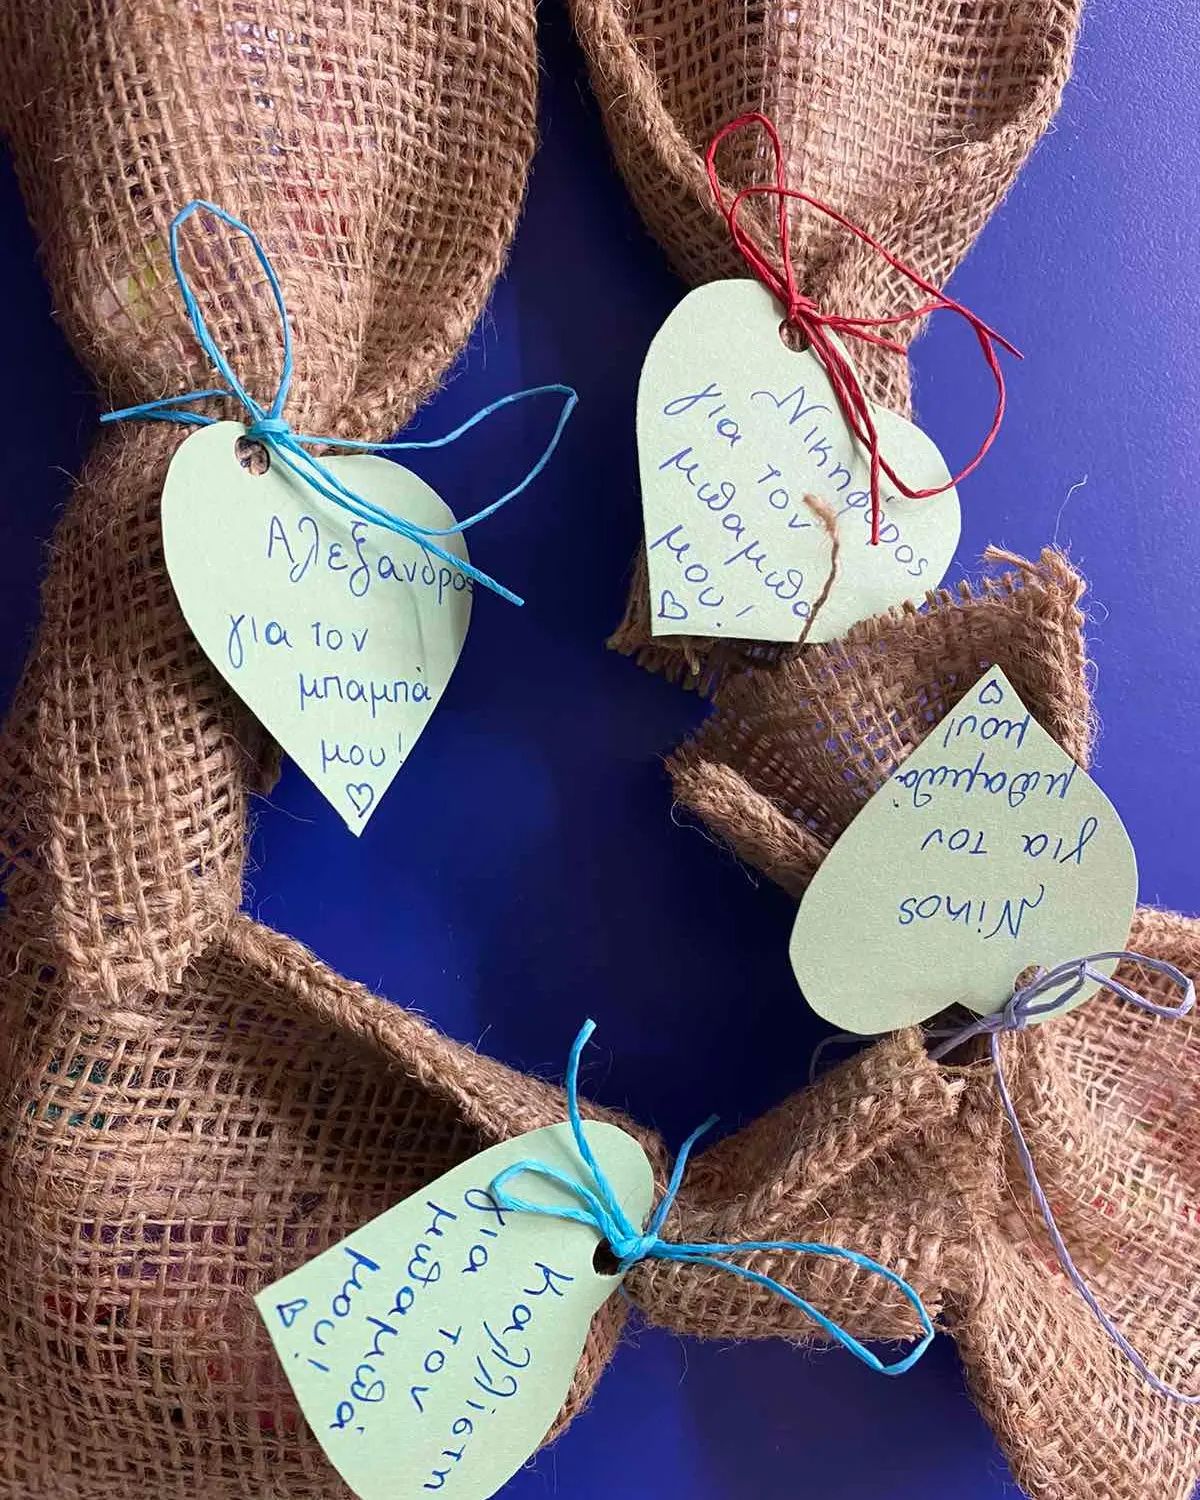 Αλεξανδρος
για τον
μπαμπά
μου! ♡
Νικηφόρος
για τον
μπαμπά
μου!
♡
Νίκος
για τον
μπαμπά
μου!
♡
Καλλίστη
για τον
μπαμπά
μου!
♡